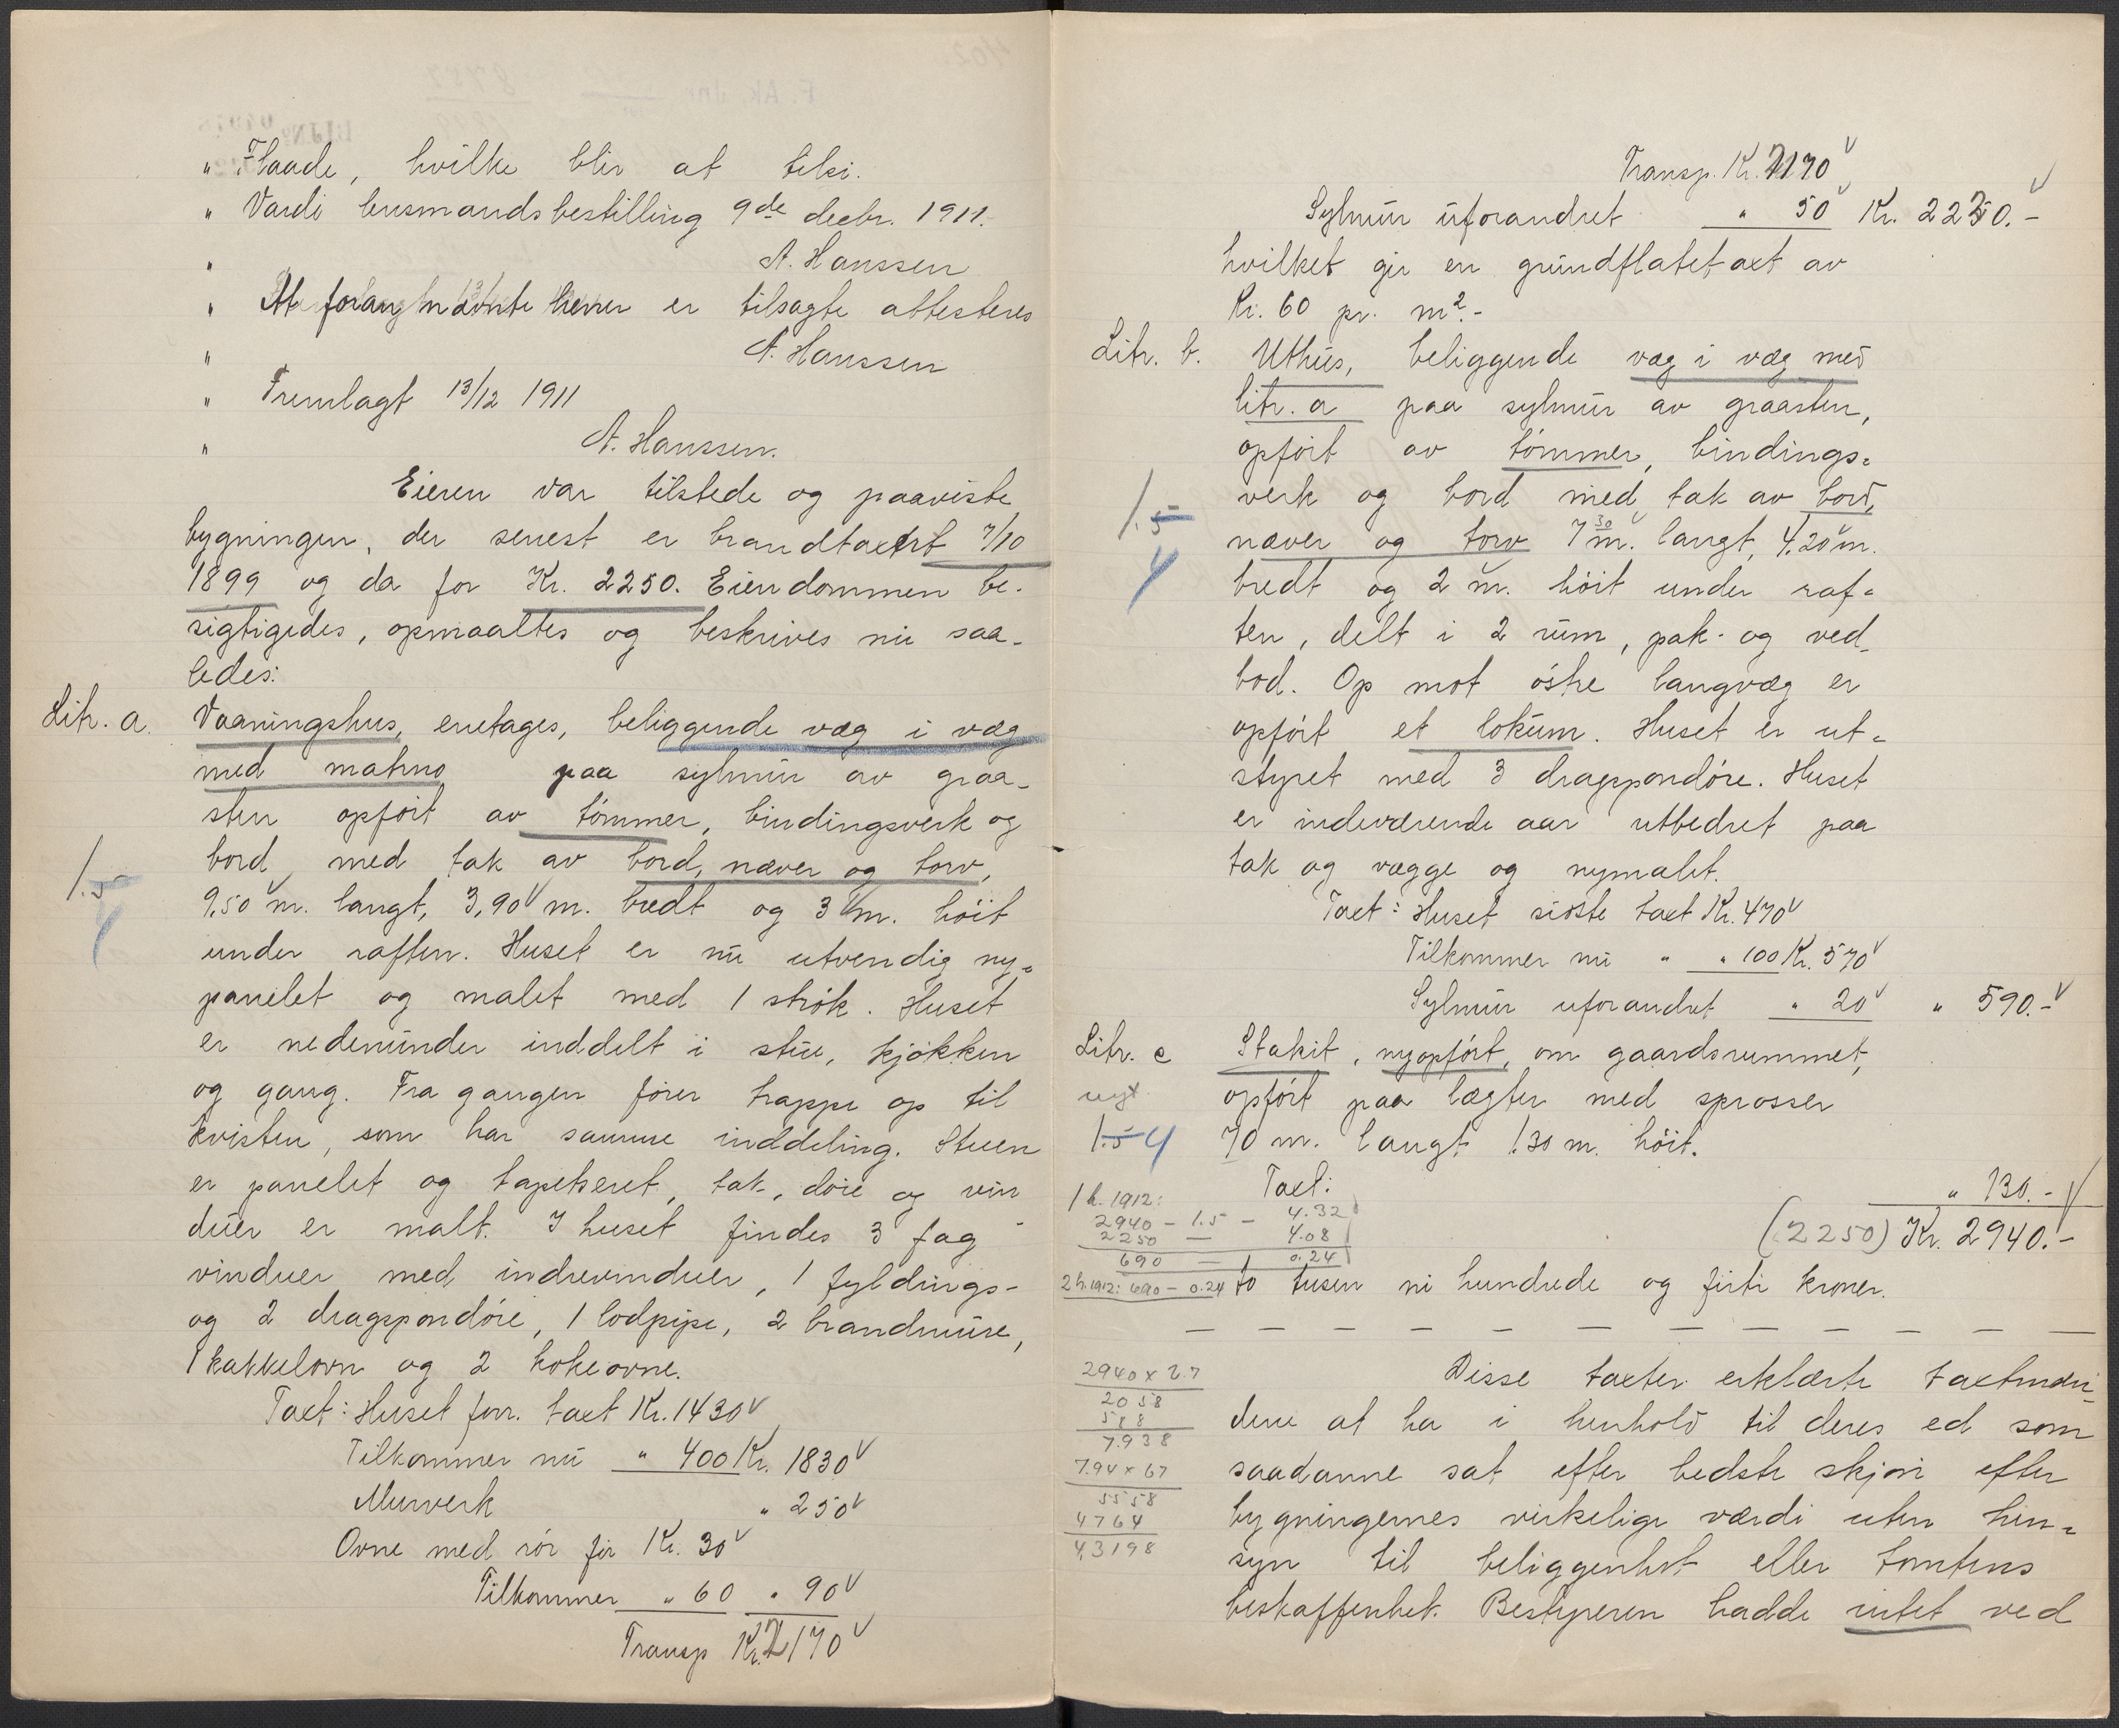 " Flaade, hvilke blir at tilsi.
" Vardö lensmandsbestilling 9de decbr. 1911.
" A. Hanssen
" At foran nævnte herrer er tilsagte attesteres
" A. Hanssen
" Fremlagt 13/12 1911
" A. Hanssen.
Eieren var tilstede og paaviste
bygningen, der senest er brandtaxert 7/10
1899 og da for Kr. 2250. Eiendommen be-
sigtigedes, opmaaltes og beskrives nu saa-
ledes:
Litr. a. Vaaningshus, enetages, beliggende væg i væg
med matrno paa sylmur av graa-
sten opført av tømmer, bindingsverk og
bord, med tak av bord, næver og torv,
1.5
4
9,50 m. langt, 3,90 m. bredt og 3 m. høit
under raften. Huset er nu utvendig ny-
panelet og malet med 1 strøk. Huset
er nedenunder inddelt i stue, kjøkken
og gang. Fra gangen fører trappe op til
kvisten, som har samme inddeling. Stuen
er panelet og tapetseret, tak, døre og vin
duer er malt. I huset findes 3 fag
vinduer med indrevinduer, 1 fyldings-
og 2 dragspondøre, 1 lodpipe, 2 brandmure,
1 kakkelovn og 2 kokeovne.
Taxt: Huset forr. taxt Kr. 1430
Tilkommer nu " 400 Kr. 1830
Murverk " 250
Ovne med rør før Kr. 30
Tilkommer " 60 " 90
Transp Kr. 2170
Transp. Kr. 2170
Sylmur uforandret " 50 Kr. 2220.-
hvilket gir en grundflatetaxt av
Kr. 60 pr. m².-
Litr. b. Uthus, beliggende væg i væg med
litr. a paa sylmur av graasten,
opført av tømmer, bindings-
verk og bord med tak av bord,
1.5
4
næver og torv 7 30 m. langt, 4,20 m.
bredt og 2 m. høit under raf-
ten, delt i 2 rum, pak- og ved-
bod. Op mot østre langvæg er
opført et lokum. Huset er ut-
styret med 3 dragspondøre. Huset
er indeværende aar utbedret paa
tak og vægge og nymalet.
Taxt: Huset sidste taxt Kr. 470
Tilkommer nu " " 100 Kr. 570
Sylmur uforandret " 20 " 590.-
Litr. c Stakit, nyopført, om gaardsrummet,
nyt. opført paa lægter med sprosser
1.5 4 70 m. langt 1.30 m. høit.
Taxt:
" 130.-
(2250) Kr. 2940.-
1 h. 1912:
2940 - 1.5 - 4.32
2250 — 4.08
690 — 0.24
2 h. 1912: 690 - 0.24
to tusen ni hundrede og firti kroner.
— — — — — — — — — — — —
2940 x 2.7
2058
588
7.938
7.94 x 67
5558
4764
4,3198
Disse taxter erklærte taxtmæn-
dene at ha i henhold til deres ed som
saadanne sat efter bedste skjøn efter
bygningernes virkelige værdi uten hen-
syn til beliggenhet eller tomtens
beskaffenhet. Bestyreren hadde intet ved